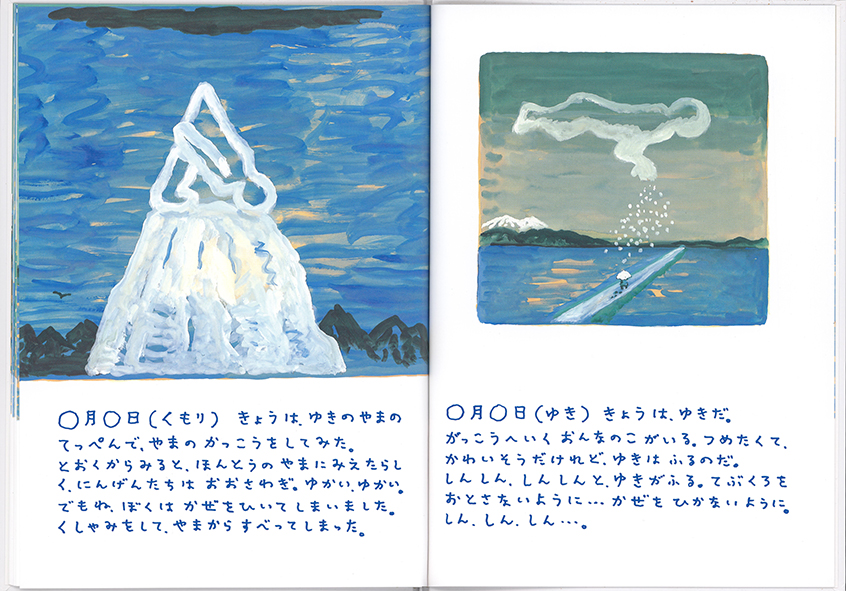 ○月○日(くもり) きょうは、ゆきのやまの
てっぺんで、やまの かっこうをしてみた。
とおくからみると、ほんとうの やまにみえたらし
く、にんげんたちは おおさわぎ。ゆかい、ゆかい。
でもね、ぼくは かぜをひいて しまいました。
くしゃみをして、やまから すべってしまった。
○月○日(ゆき) きょうは、ゆきだ。
がっこうへいく おんなのこ がいる。つめたくて、
かわいそうだけれど、ゆきは ふるのだ。
しんしん、しんしんと、ゆきがふる。てぶくろを
おとさないように… かぜを ひかないように。
しん、しん、しん…。